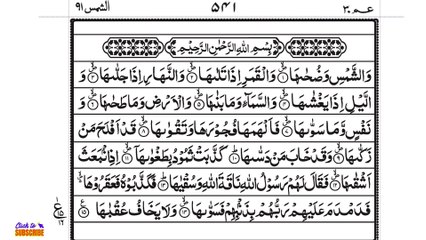 الشمس ٩١ ٥٤١ عـم ٣٠
بِسْمِ اللّٰهِ الرَّحْمٰنِ الرَّحِيْمِ
وَالشَّمْسِ وَضُحٰىهَا ۙ﴿۱﴾ وَالْقَمَرِ اِذَا تَلٰىهَا ۙ﴿۲﴾ وَالنَّهَارِ اِذَا جَلّٰىهَا ۙ﴿۳﴾
وَالَّيْلِ اِذَا يَغْشٰىهَا ۙ﴿۴﴾ وَالسَّمَآءِ وَمَا بَنٰىهَا ۙ﴿۵﴾ وَالْاَرْضِ وَمَا طَحٰىهَا ۙ﴿۶﴾ وَ
نَفْسٍ وَّمَا سَوّٰىهَا ۙ﴿۷﴾ فَاَلْهَمَهَا فُجُوْرَهَا وَتَقْوٰىهَا ۙ﴿۸﴾ قَدْ اَفْلَحَ مَنْ
زَكّٰىهَا ۙ﴿۹﴾ وَقَدْ خَابَ مَنْ دَسّٰىهَا ؕ﴿۱۰﴾ كَذَّبَتْ ثَمُوْدُ بِطَغْوٰىهَاۤ ۙ﴿۱۱﴾ اِذِ انْۢبَعَثَ
اَشْقٰىهَا ۙ﴿۱۲﴾ فَقَالَ لَهُمْ رَسُوْلُ اللّٰهِ نَاقَةَ اللّٰهِ وَسُقْيٰهَا ؕ﴿۱۳﴾ فَكَذَّبُوْهُ فَعَقَرُوْهَا
فَدَمْدَمَ عَلَيْهِمْ رَبُّهُمْ بِذَنْۢبِهِمْ فَسَوّٰىهَا ۙ﴿۱۴﴾ وَلَا يَخَافُ عُقْبٰهَا ﴿۱۵﴾
Click to
SUBSCRIBE